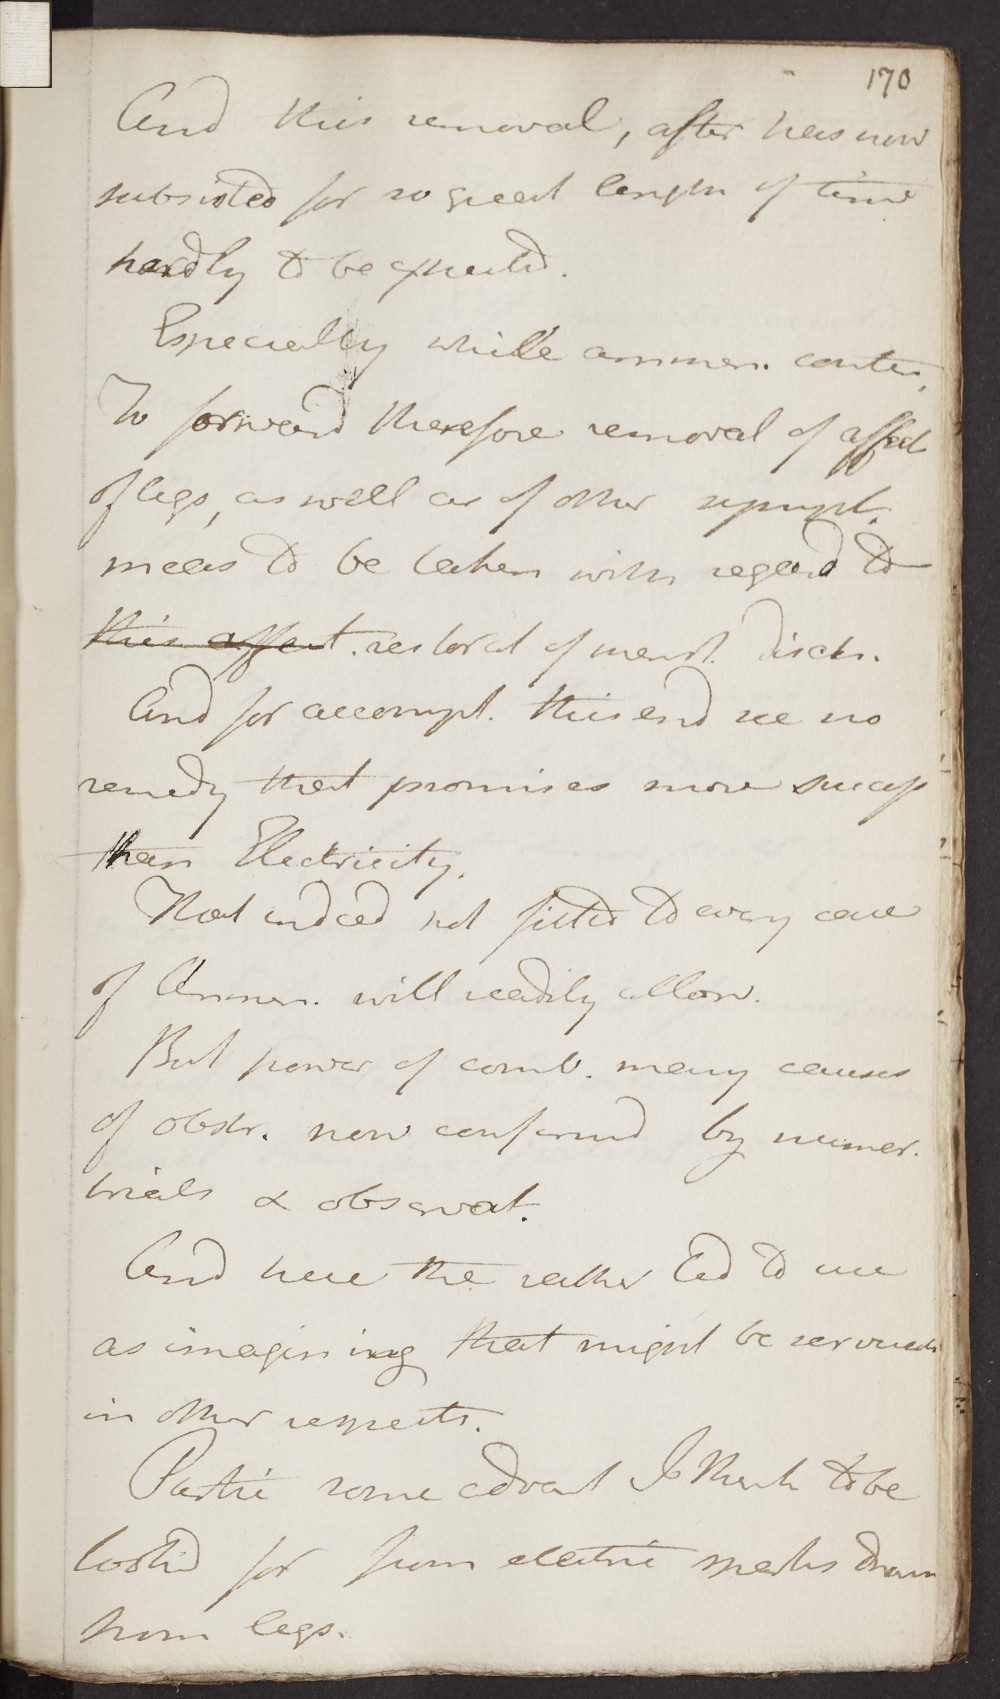 170
And this removal, after has now
subsisted for so great length of time
hardly to be expected.
Especially while ammen. contin.
To forward therefore removal of affect
of legs, as well as of other sympt.
meas to be taken with regard to
this affect. restorat of menst. disch.
And for accompt. this end see no
remedy that promises more success
than Electricity.
That indeed not fitted to every case
of Ammen. will readily allow.
But power of comb. many causes
of obstr. now confirmed by numer.
trials & observat.
And here the rather led to use
as imagining that might be serviceab
in other respects.
Partic some advant I think to be
looked for from electric sparks drawn
from legs.